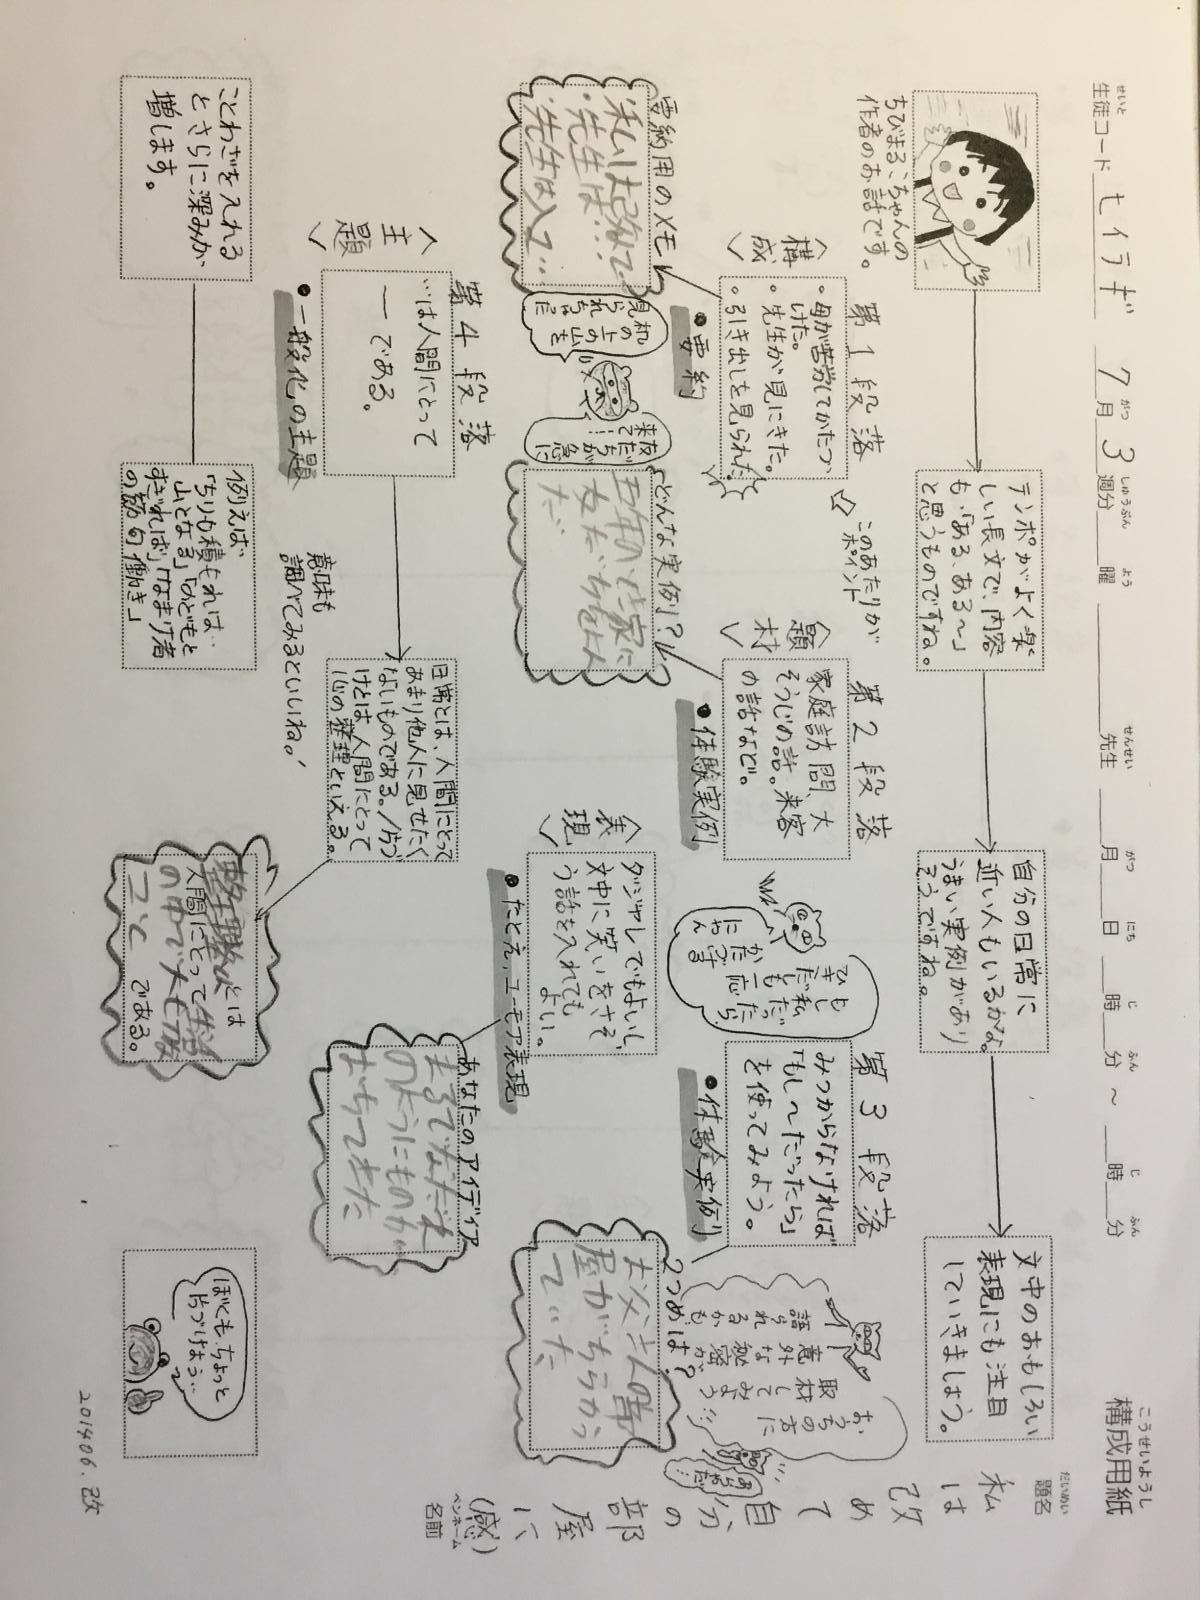 構成用紙
こうせいようし
生徒コード セイテギ 7月3週分 曜 先生 月 日 時 分 ～ 時 分
せいと がつ しゅうぶん よう せんせい がつ にち じ ふん じ ふん
題名
だいめい
私は改めて自分の部屋に、
(感)
ペンネーム
名前
ちびまるこちゃんの
作者のお話です。
テンポがよく楽
しい長文で、内容
も、「ある、ある～」
と思うものですね。
自分の日常に
近い人もいるかな。
うまい実例があり
そうですね。
文中のおもしろい
表現にも注目
していきましょう。
〈構成〉
第1段落
・母が苦労してかたづ
けた。
・先生が見にきた。
・引き出しを見られた
・要約
このあたりが
ポイント
要約用のメモ
・先生は…
・先生は入って…
机の上の山を
見られちゃった
友だちが急に
来て…
〈題材〉
第2段落
家庭訪問、大
そうじの話。来客
の話など。
・体験実例
どんな実例?
五年の時家に
友だちをよん
だ
もし私だったら
だっても一応
かたづき
にゃん
第3段落
みつからなければ
「もし～だったら」
を使ってみよう。
・体験実例
おうちの方に
取材してみよう
意外な秘密が
語られるかも
2つめは?
お父さんの部
屋がちらかっ
ていた
〈表現〉
ダジャレでもよいし、
文中に笑いをさそ
う話を入れても
よい。
・たとえ、ユーモア表現
あなたのアイディア
まるでなだれ
のようにものが
おちてきた
〈主題〉
第4段落
…は人間にとって
ーである。
・一般化の主題
日常とは、人間にとって
あまり他人に見せたく
ないものである。/片づ
けとは人間にとって
心の整理といえる。
意味も
調べてみるといいね!
ことわざを入れる
とさらに深みが
増します。
例えば
「ちりも積もれば…
山となる」「のどもと
すぎれば」「なまけ者
の節句働き」
とは
人間にとって生活
の中で大切な
こと
である。
ぼくもちょっと
片づけよう…
201406.改